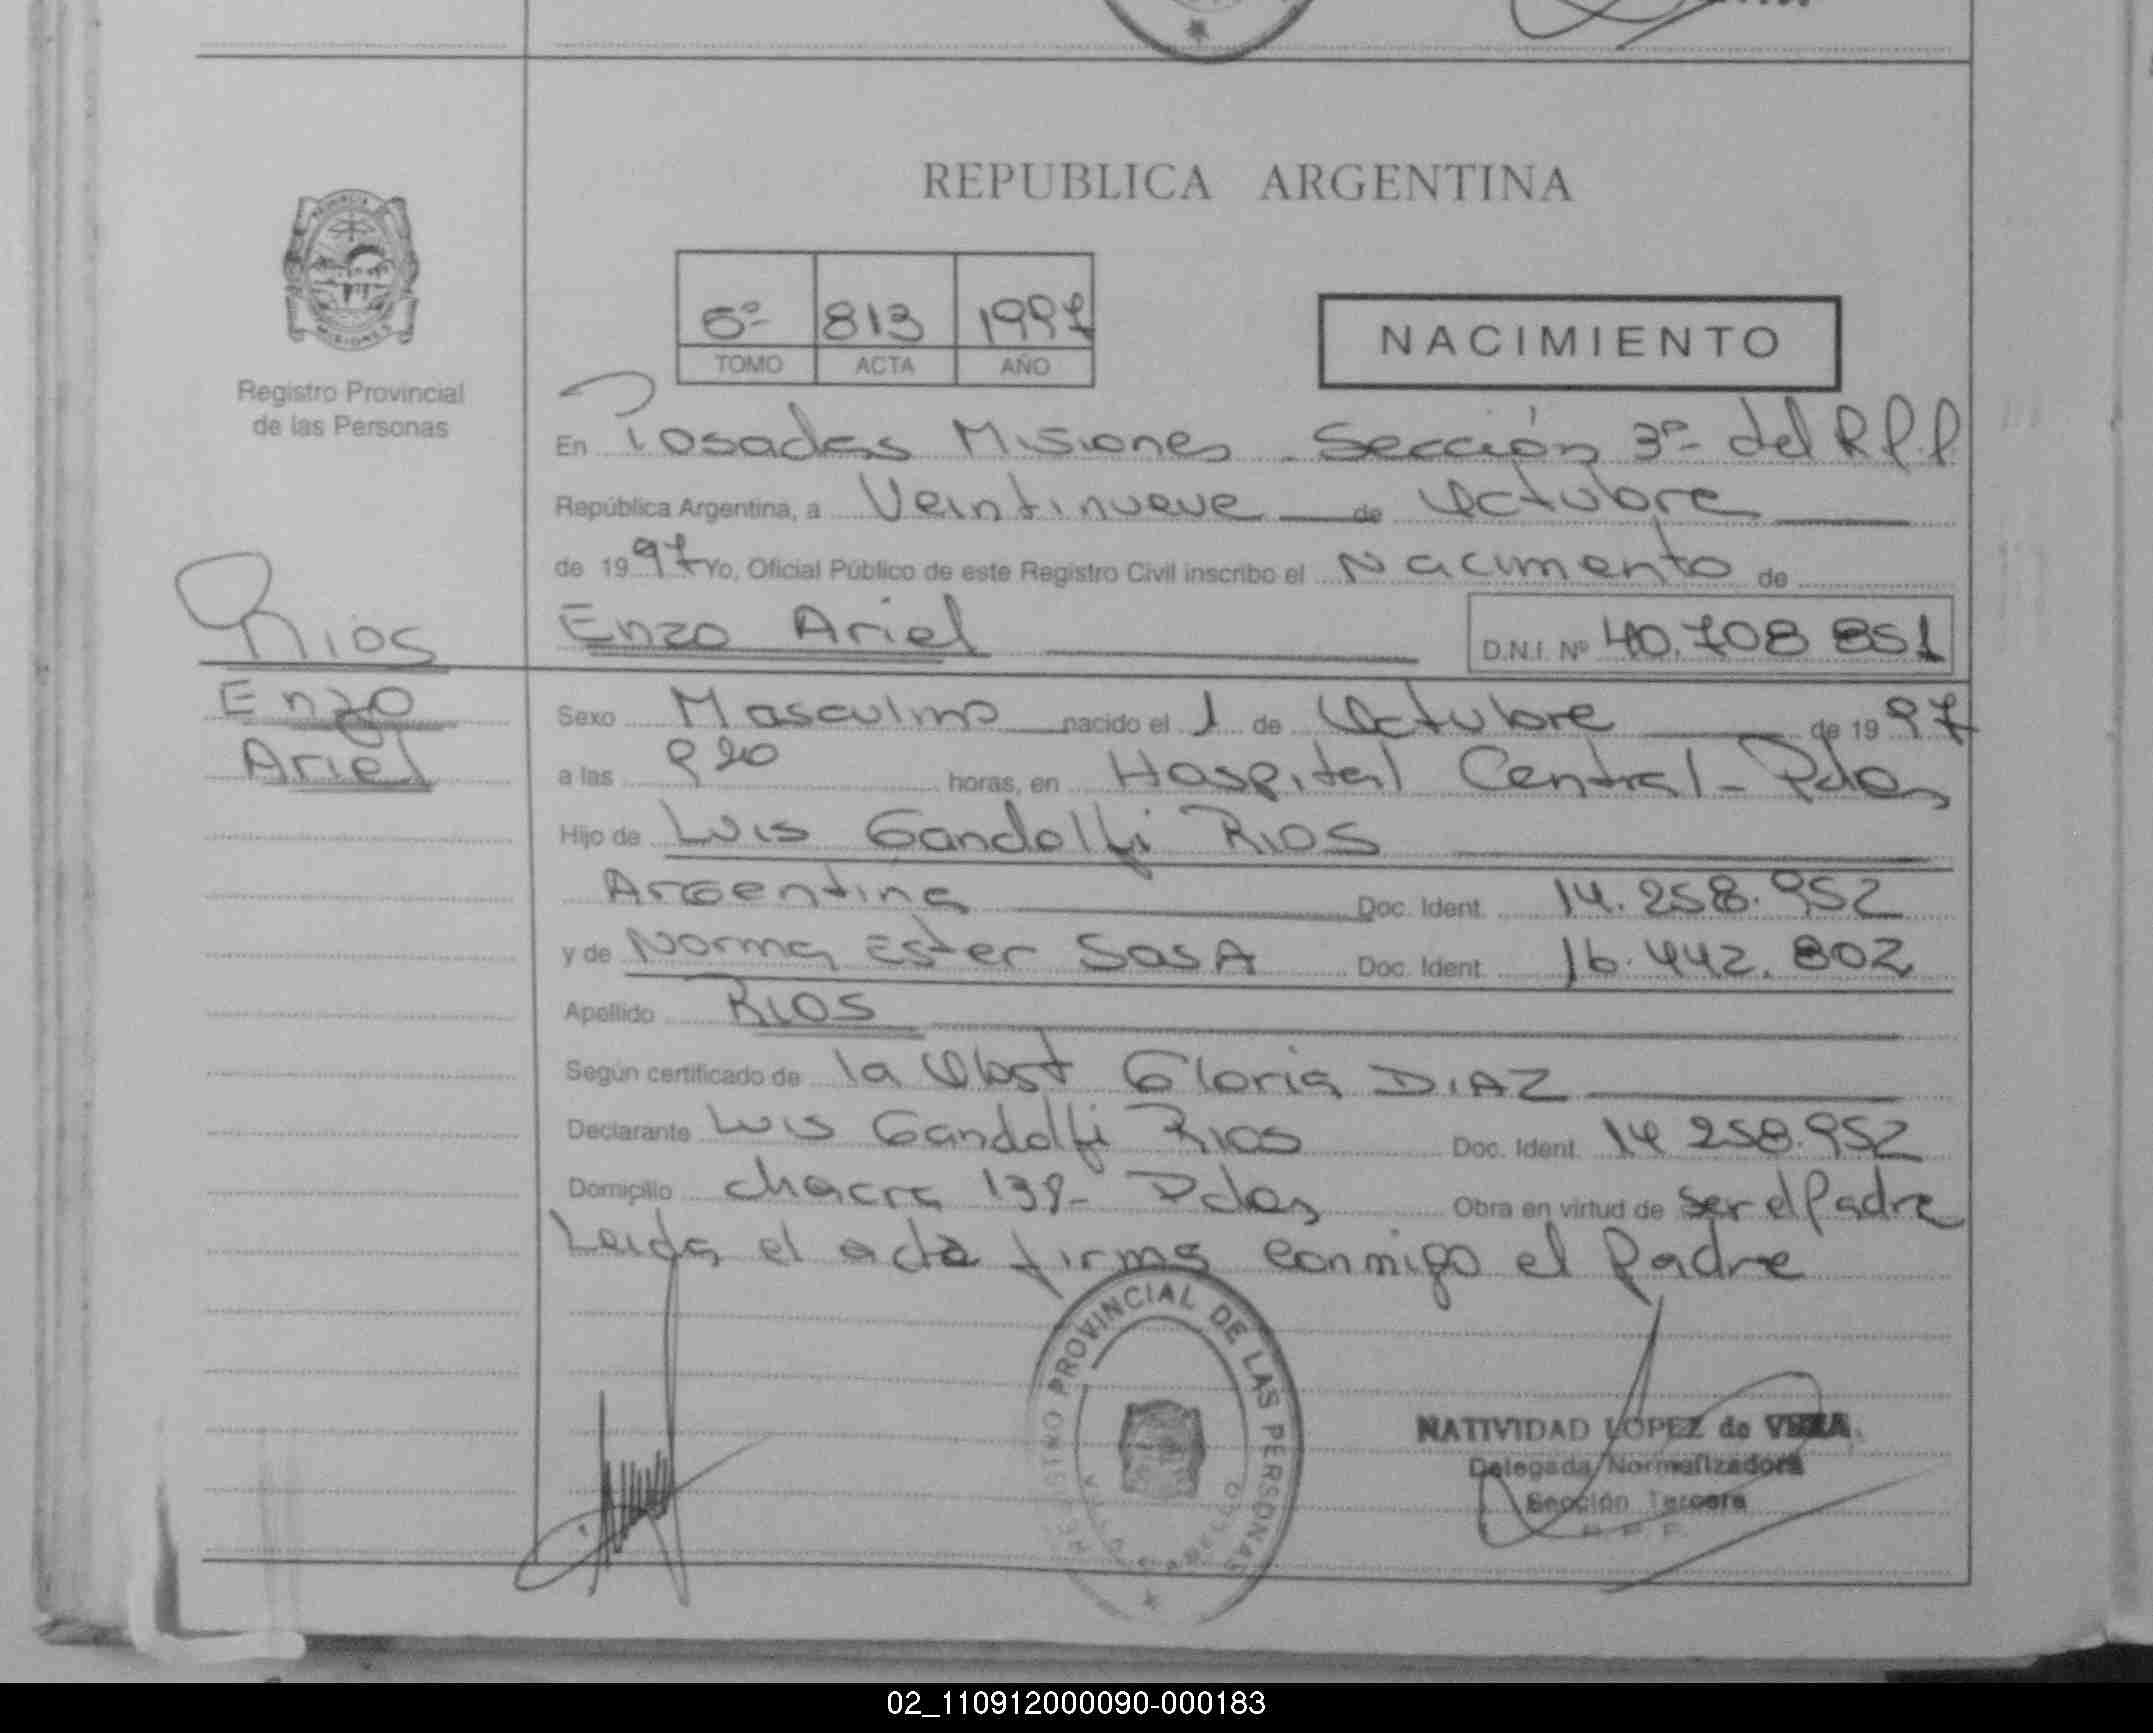 REPUBLICA ARGENTINA
PROVINCIA
MISIONES
Registro Provincial
de las Personas
6º 813 1997
TOMO ACTA AÑO
NACIMIENTO
En Posadas Misiones - Sección 3º del R.P.P
República Argentina, a Veintinueve de Octubre
de 1997 Yo, Oficial Público de este Registro Civil inscribo el Nacimento de
Rios Enzo Ariel D.N.I. Nº 40.708 851
Enzo
Ariel
Sexo Masculino nacido el 1 de Octubre de 1997
a las 9 20 horas, en Hospital Central - Pdas
Hijo de Luis Gandolfi RIOS
Argentina Doc. Ident. 14.258.952
y de Norma Ester SosA Doc. Ident. 16.442.802
Apellido RIOS
Según certificado de la Obst Gloria DIAZ
Declarante Luis Gandolfi Rios Doc. Ident. 14 258.952
Domicilio chacra 139- Pdas Obra en virtud de ser el Padre
Leida el acta firma conmigo el Padre
REGISTRO PROVINCIAL DE LAS PERSONAS
VILLA CABELLO
NATIVIDAD LOPEZ de VERA
Delegada Normalizadora
Sección Tercera
R. P. P.
02_110912000090-000183